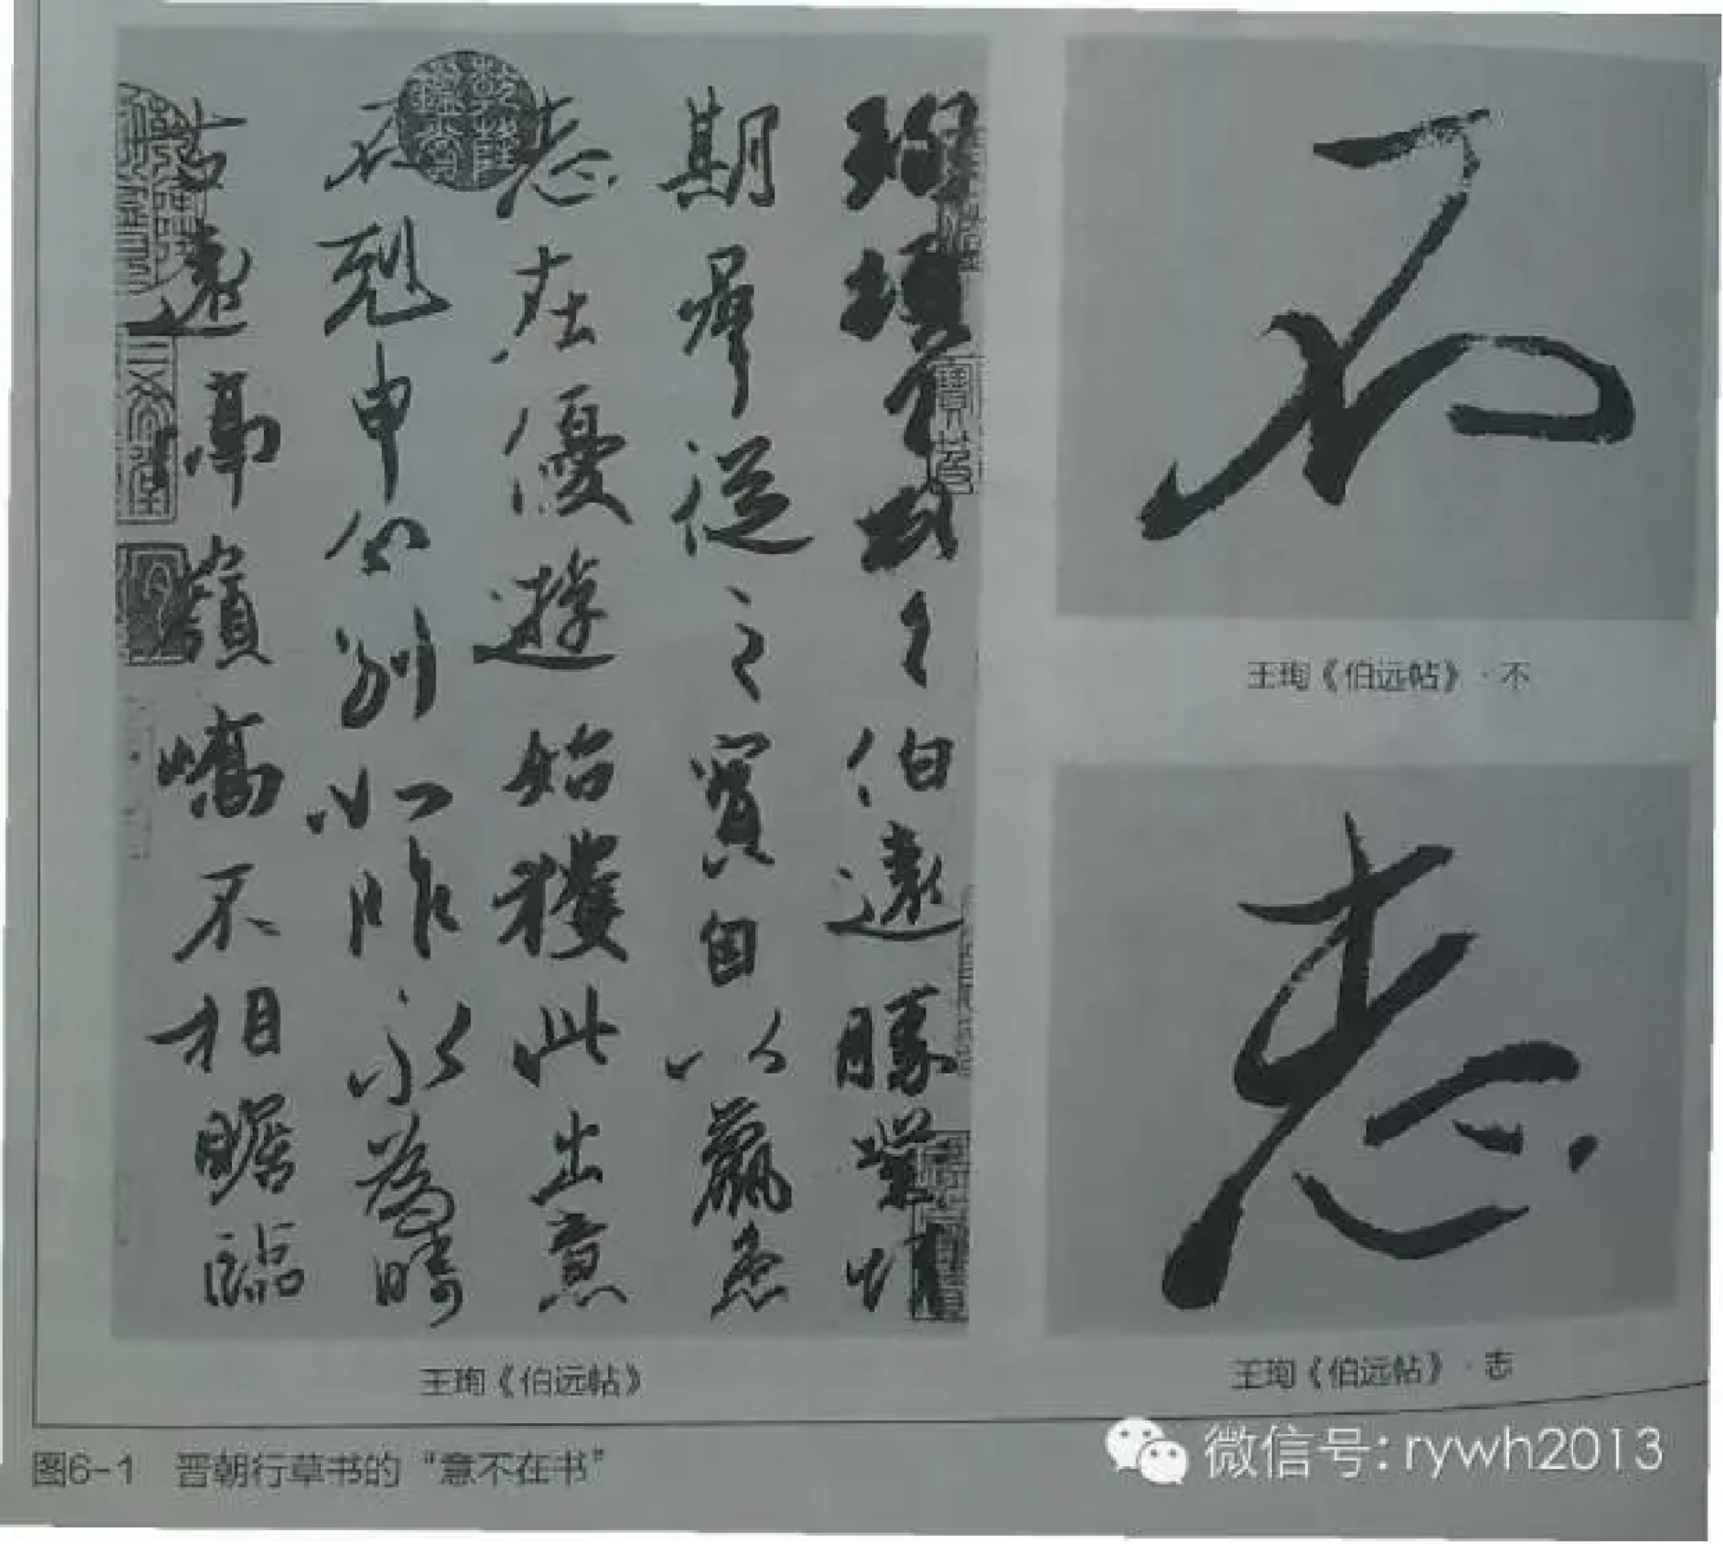 珣頓首頓首伯遠勝業情
期羣從之寶自以羸患
志在優遊始獲此出意
不剋申分別如昨永為疇
古遠隔嶺嶠不相瞻臨
王珣《伯远帖》
不
王珣《伯远帖》·不
志
王珣《伯远帖》·志
图6-1 晋朝行草书的“意不在书”
微信号: rywh2013